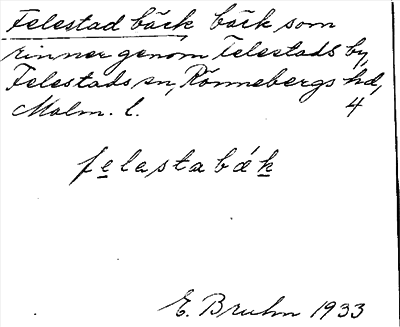 Felestad bäck, bäck som
rinner genom Felestads by,
Felestads sn, Rönnebergs hd,
Malm. l. 4
felestabǽk
E. Bruhn 1933